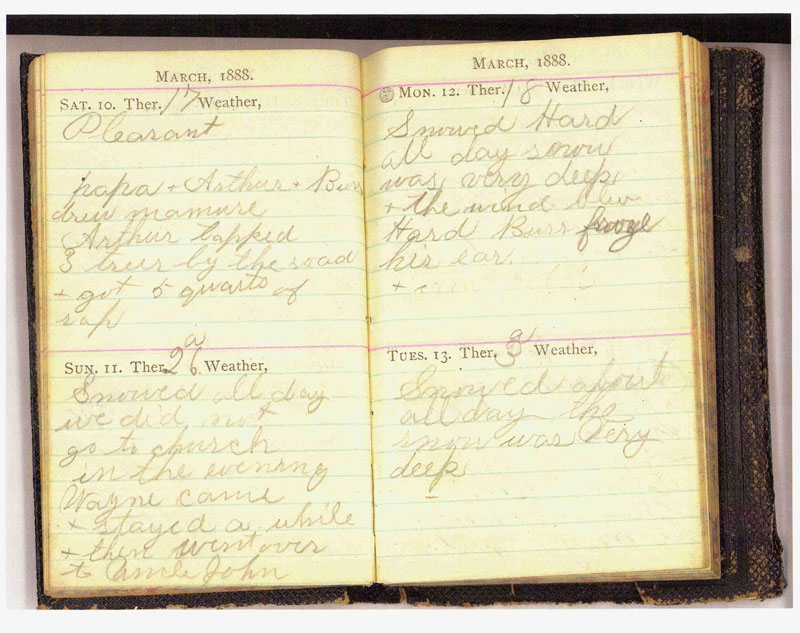 MARCH, 1888.
SAT. 10. Ther. 17 Weather,
Pleasant
papa + Arthur + Burr
drew manure
Arthur tapped
3 trees by the road
+ got 5 quarts of
sap
SUN. 11. Ther. 26 Weather,
Snowed all day
we did not
go to church
in the evening
Wayne came
+ stayed a while
+ then went over
to Uncle John
MARCH, 1888.
MON. 12. Ther. 18 Weather,
Snowed Hard
all day snow
was very deep
+ the wind blew
Hard Burr froze
his ear
+
TUES. 13. Ther. 3 Weather,
Snowed about
all day the
snow was Very
deep